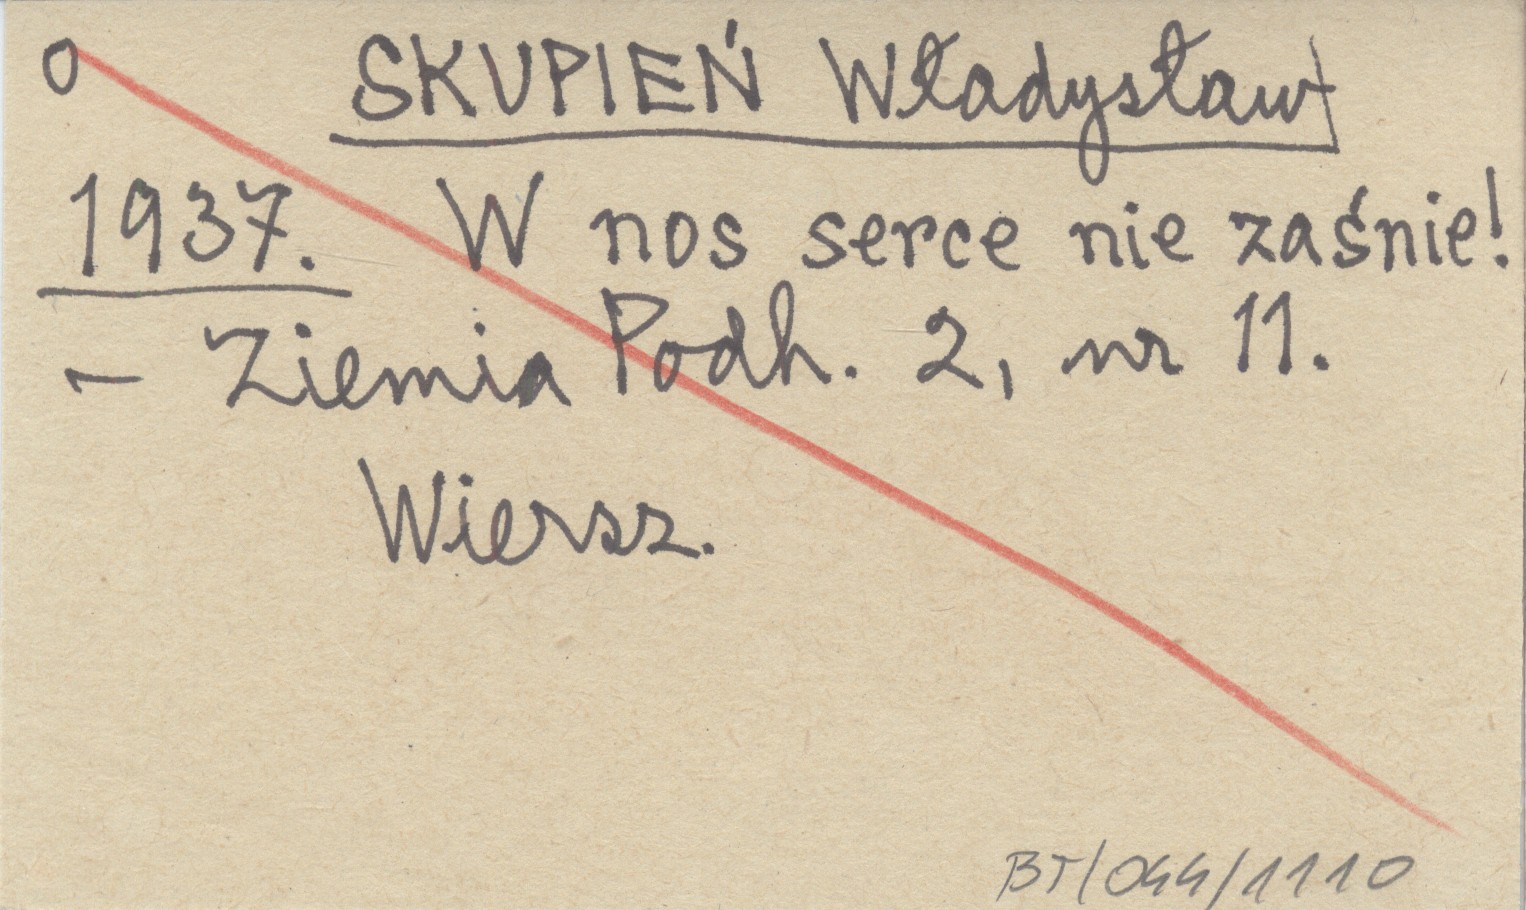 O SKUPIEŃ Władysław
1937. W nos serce nie zaśnie!
– Ziemia Podh. 2, nr 11.
Wiersz.
BT/044/1110